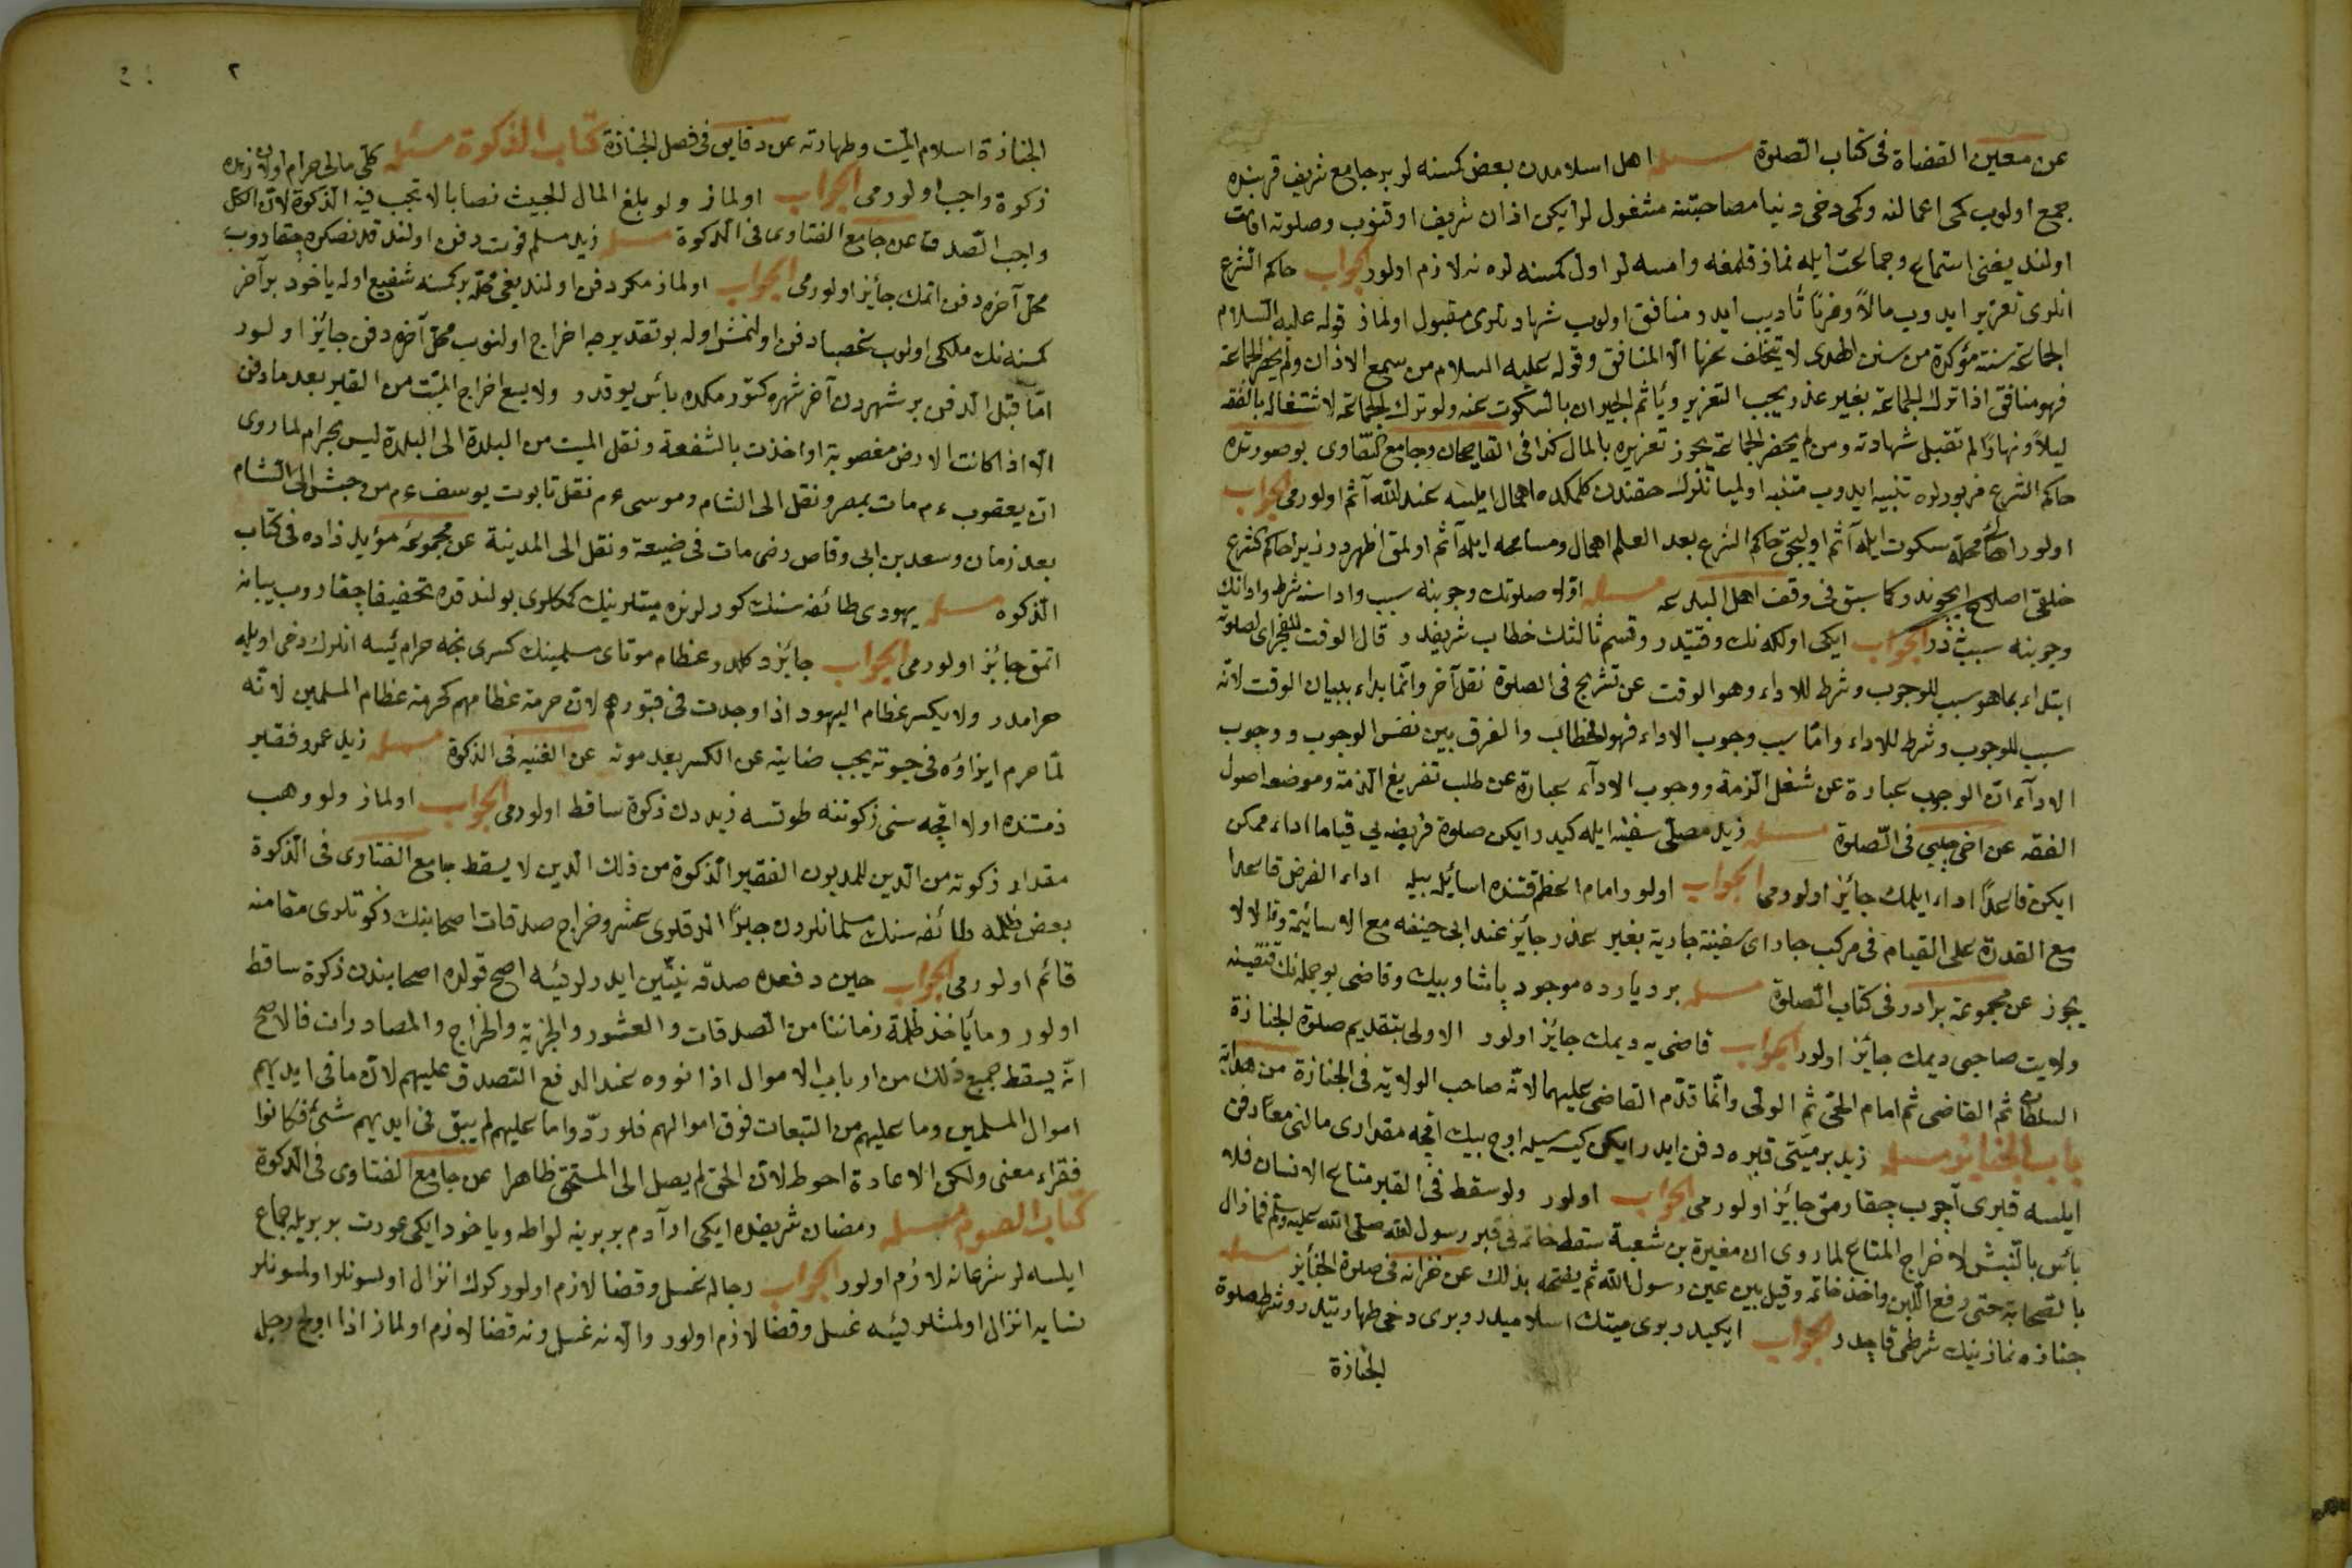 عن معين القضاة فى كتاب الصلوة مسئله اهل اسلامدن بعض كمسنه لر بر جامع شريف قربنده
جمع اولوب كمى اعمالنه وكمى دخى دنيا مصاحبتنه مشغول لر ايكن اذان شريف اوقنوب وصلوته اقامت
اولندیغنى استماع وجماعت ايله نماز قلمغه وارمسه لر اول كمسنه لره نه لازم اولور الجواب حاكم الشرع
انلرى تعزير ايدوب مالاً وضربًا تأديب ايدر منافق اولوب شهادتلرى مقبول اولماز قوله عليه السلام
الجماعة سنة مؤكدة من سنن الهدى لا يتخلف عنها الا المنافق وقوله عليه السلام من سمع الاذان ولم يحضر الجماعة
فهو منافق اذا ترك الجماعة بغير عذر يجب التعزير ويأثم الجيران بالسكوت عنه ولو ترك الجماعة لاشتغاله بالفقه
ليلاً ونهارًا لم تقبل شهادته ومن لم يحضر الجماعة يجوز تعزيره بالمال كذا فى القاضيخان وجامع الفتاوى بو صورتده
حاكم الشرع مزبورلره تنبيه ايدوب متنبه اولميانلرك حقندن كلمكده اهمال ايلسه عند الله آثم اولورمى الجواب
اولور اهل محله سكوت ايله آثم اوليجق حاكم الشرع بعد العلم اهمال ومسامحه ايله آثم اولمق اظهردر زيرا حاكم شرع
خلقى اصلاح ايچوندر كما سبق فى وقف اهل البدعه مسئله اوله صلوتك وجوبنه سبب واداسنه شرط وادانك
وجوبنه سبب نه در الجواب ايكى اولكه نك وقتيدر وقسم ثالثك خطاب شريفدر قال الوقت للفجر اى لصلوته
ابتداء بما هو سبب للوجوب وشرط للاداء وهو الوقت عن تشريح فى الصلوة نقل آخر وانما بداء ببيان الوقت لانه
سبب للوجوب وشرط للاداء واما سبب وجوب الاداء فهو الخطاب والفرق بين نفس الوجوب ووجوب
الادآء ان الوجوب عبارة عن شغل الذمة ووجوب الادآء عبارة عن طلب تفريغ الذمة وموضعه اصول
الفقه عن اخى چلبى فى الصلوة مسئله زيد مصلى سفينه ايله كيدر ايكن صلوة فريضه يى قياما اداء ممكن
ايكن قاعدًا اداء ايلمك جائز اولورمى الجواب اولور امام اعظم قتنده اسائيله بيله اداء الفرض قاعدا
مع القدرة على القيام فى مركب جار اى سفينة جارية بغير عذر جائز عند ابى حنيفه مع الاسائية وقالا لا
يجوز عن مجموعة برادر فى كتاب الصلوة مسئله بر ديارده موجود پاشا وبيك وقاضى بو جمله نك قنغيسنه
ولايت صاحبى ديمك جائز اولور الجواب قاضى يه ديمك جائز اولور الاولى بتقديم صلوة الجنازة
السلطان ثم القاضى ثم امام الحى ثم الولى وانما قدّم القاضى عليهما لانه صاحب الولاية فى الجنازة من هداية
باب الجنائز مسئله زيد بر ميتى قبره دفن ايدر ايكن كيسه سيله اوچ بيك اقچه مقدارى مالنى معًا دفن
ايلسه قبرى آچوب چقارمق جائز اولورمى الجواب اولور ولو سقط فى القبر متاع الانسان فلا
بأس بالنبش لاخراج المتاع لما روى ان مغيرة بن شعبة سقط خاتمه فى قبر رسول الله صلى الله عليه وسلم فما زال
بالصحابة حتى رفع اللبن واخذ خاتمه وقبل بين عين رسول الله ثم يفتخر بذلك عن خزانه فى صلوة الجنائز مسئله
جنازه نمازينك شرطى قاچدر الجواب ايكيدر برى ميتك اسلاميدر وبرى دخى طهارتيدر وشرط صلوة
الجنازة
٢
الجنازة اسلام الميت وطهارته عن دقايق فى فصل الجنازة كتاب الذكوة مسئله كلى مالى حرام اولان زيده
زكوة واجب اولورمى الجواب اولماز ولو بلغ المال الخبيث نصابا لا تجب فيه الذكوة لان الكل
واجب التصدق عن جامع الفتاوى فى الذكوة مسئله زيد مسلم فوت ودفن اولندقدنصكره چقاروب
محل آخره دفن اتمك جائز اولورمى الجواب اولماز مكر دفن اولنديغى محله بر كمسنه شفيع اوله ياخود بر آخر
كمسنه نك ملكى اولوب غصبا دفن اولنمش اوله بو تقديرجه اخراج اولنوب محل آخره دفن جائز اولور
اما قبل الدفن بر شهردن آخر شهره كتورمكده بأس يوقدر ولا يسع اخراج الميت من القبر بعد ما دفن
الا اذا كانت الارض مغصوبة او اخذت بالشفعة ونقل الميت من البلدة الى البلدة ليس بحرام لما روى
ان يعقوب ءم مات بمصر ونقل الى الشام وموسى ءم نقل تابوت يوسف ءم من الى الشام
بعد زمان وسعد بن ابى وقاص رضى مات فى ضيعة ونقل الى المدينة عن مجموعه مؤيد زاده فى كتاب
الذكوه مسئله يهودى طائفه سنك كورلرنده ميتلرينك كمكلرى بولندقده تحفيفا چقاروب يبانه
اتمق جايز اولورمى الجواب جائز دكلدر عظام موتاى مسلمينك كسرى نجه حرام ئيسه انلرك دخى اويله
حرامدر ولا يكسر عظام اليهود اذا وجدت فى قبورهم لان حرمة عظامهم كحرمة عظام المسلمين لانه
لما حرم ايزاؤه فى حيوته يجب صيانته عن الكسر بعد موته عن القنيه فى الذكوة مسئله زيد عمرو فقير
ذمتنده اولان اقچه سنى زكوتنه طوتسه زيددن زكوة ساقط اولورمى الجواب اولماز ولو وهب
مقدار زكوته من الدين للمديون الفقير الذكوة من ذلك الدين لا يسقط جامع الفتاوى فى الذكوة
بعض ظلمه طائفه سنك مسلمانلردن جبرًا الدقلرى عشر وخراج صدقات اصحابنك زكوتلرى مقامنه
قائم اولورمى الجواب حين دفعده صدقه نيتين ايدرلرئيسه اصح قولده اصحابندن زكوة ساقط
اولور وما يأخذ ظلمة زماننا من الصدقات والعشور والجزية والخراج والمصادرات فالاصح
انه يسقط جميع ذلك من ارباب الاموال اذا نووه عند الدفع التصدق عليهم لان ما فى ايديهم
اموال المسلمين وما عليهم من التبعات فوق اموالهم فلو ردّوا ما عليهم لم يبق فى ايديهم شئ فكانوا
فقراء معنى ولكن الاعادة احوط لان الحق لم يصل الى المستحق ظاهرا عن جامع الفتاوى فى الذكوة
كتاب الصوم مسئله رمضان شريفده ايكى ار آدم بر برينه لواطه وياخود ايكى عورت بر بريله جماع
ايلسه لر شرعا نه لازم اولور الجواب رجاله غسل وقضا لازم اولور كرك انزال اولسونلر اولمسونلر
نسايه انزال اولمشلر ئيسه غسل وقضا لازم اولور والا نه غسل ونه قضا لازم اولماز اذا اولج رجل